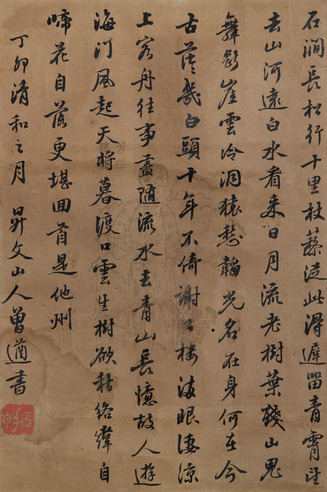 石澗長松行十里杖藜從此得遲留青霄望
去山河遠白水看來日月流老樹葉殘山鬼
舞懸崖雲冷洞猿愁韜光名在身何在今
古蒼茫白頭十年不倚謝公樓滿眼淒涼
上客舟往事盡隨流水去青山長憶故人遊
海門風起天將暮渡口雲生樹欲秋絡緯自
啼花自落更堪回首是他州
丁卯清和之月 昇文山人曾遒書